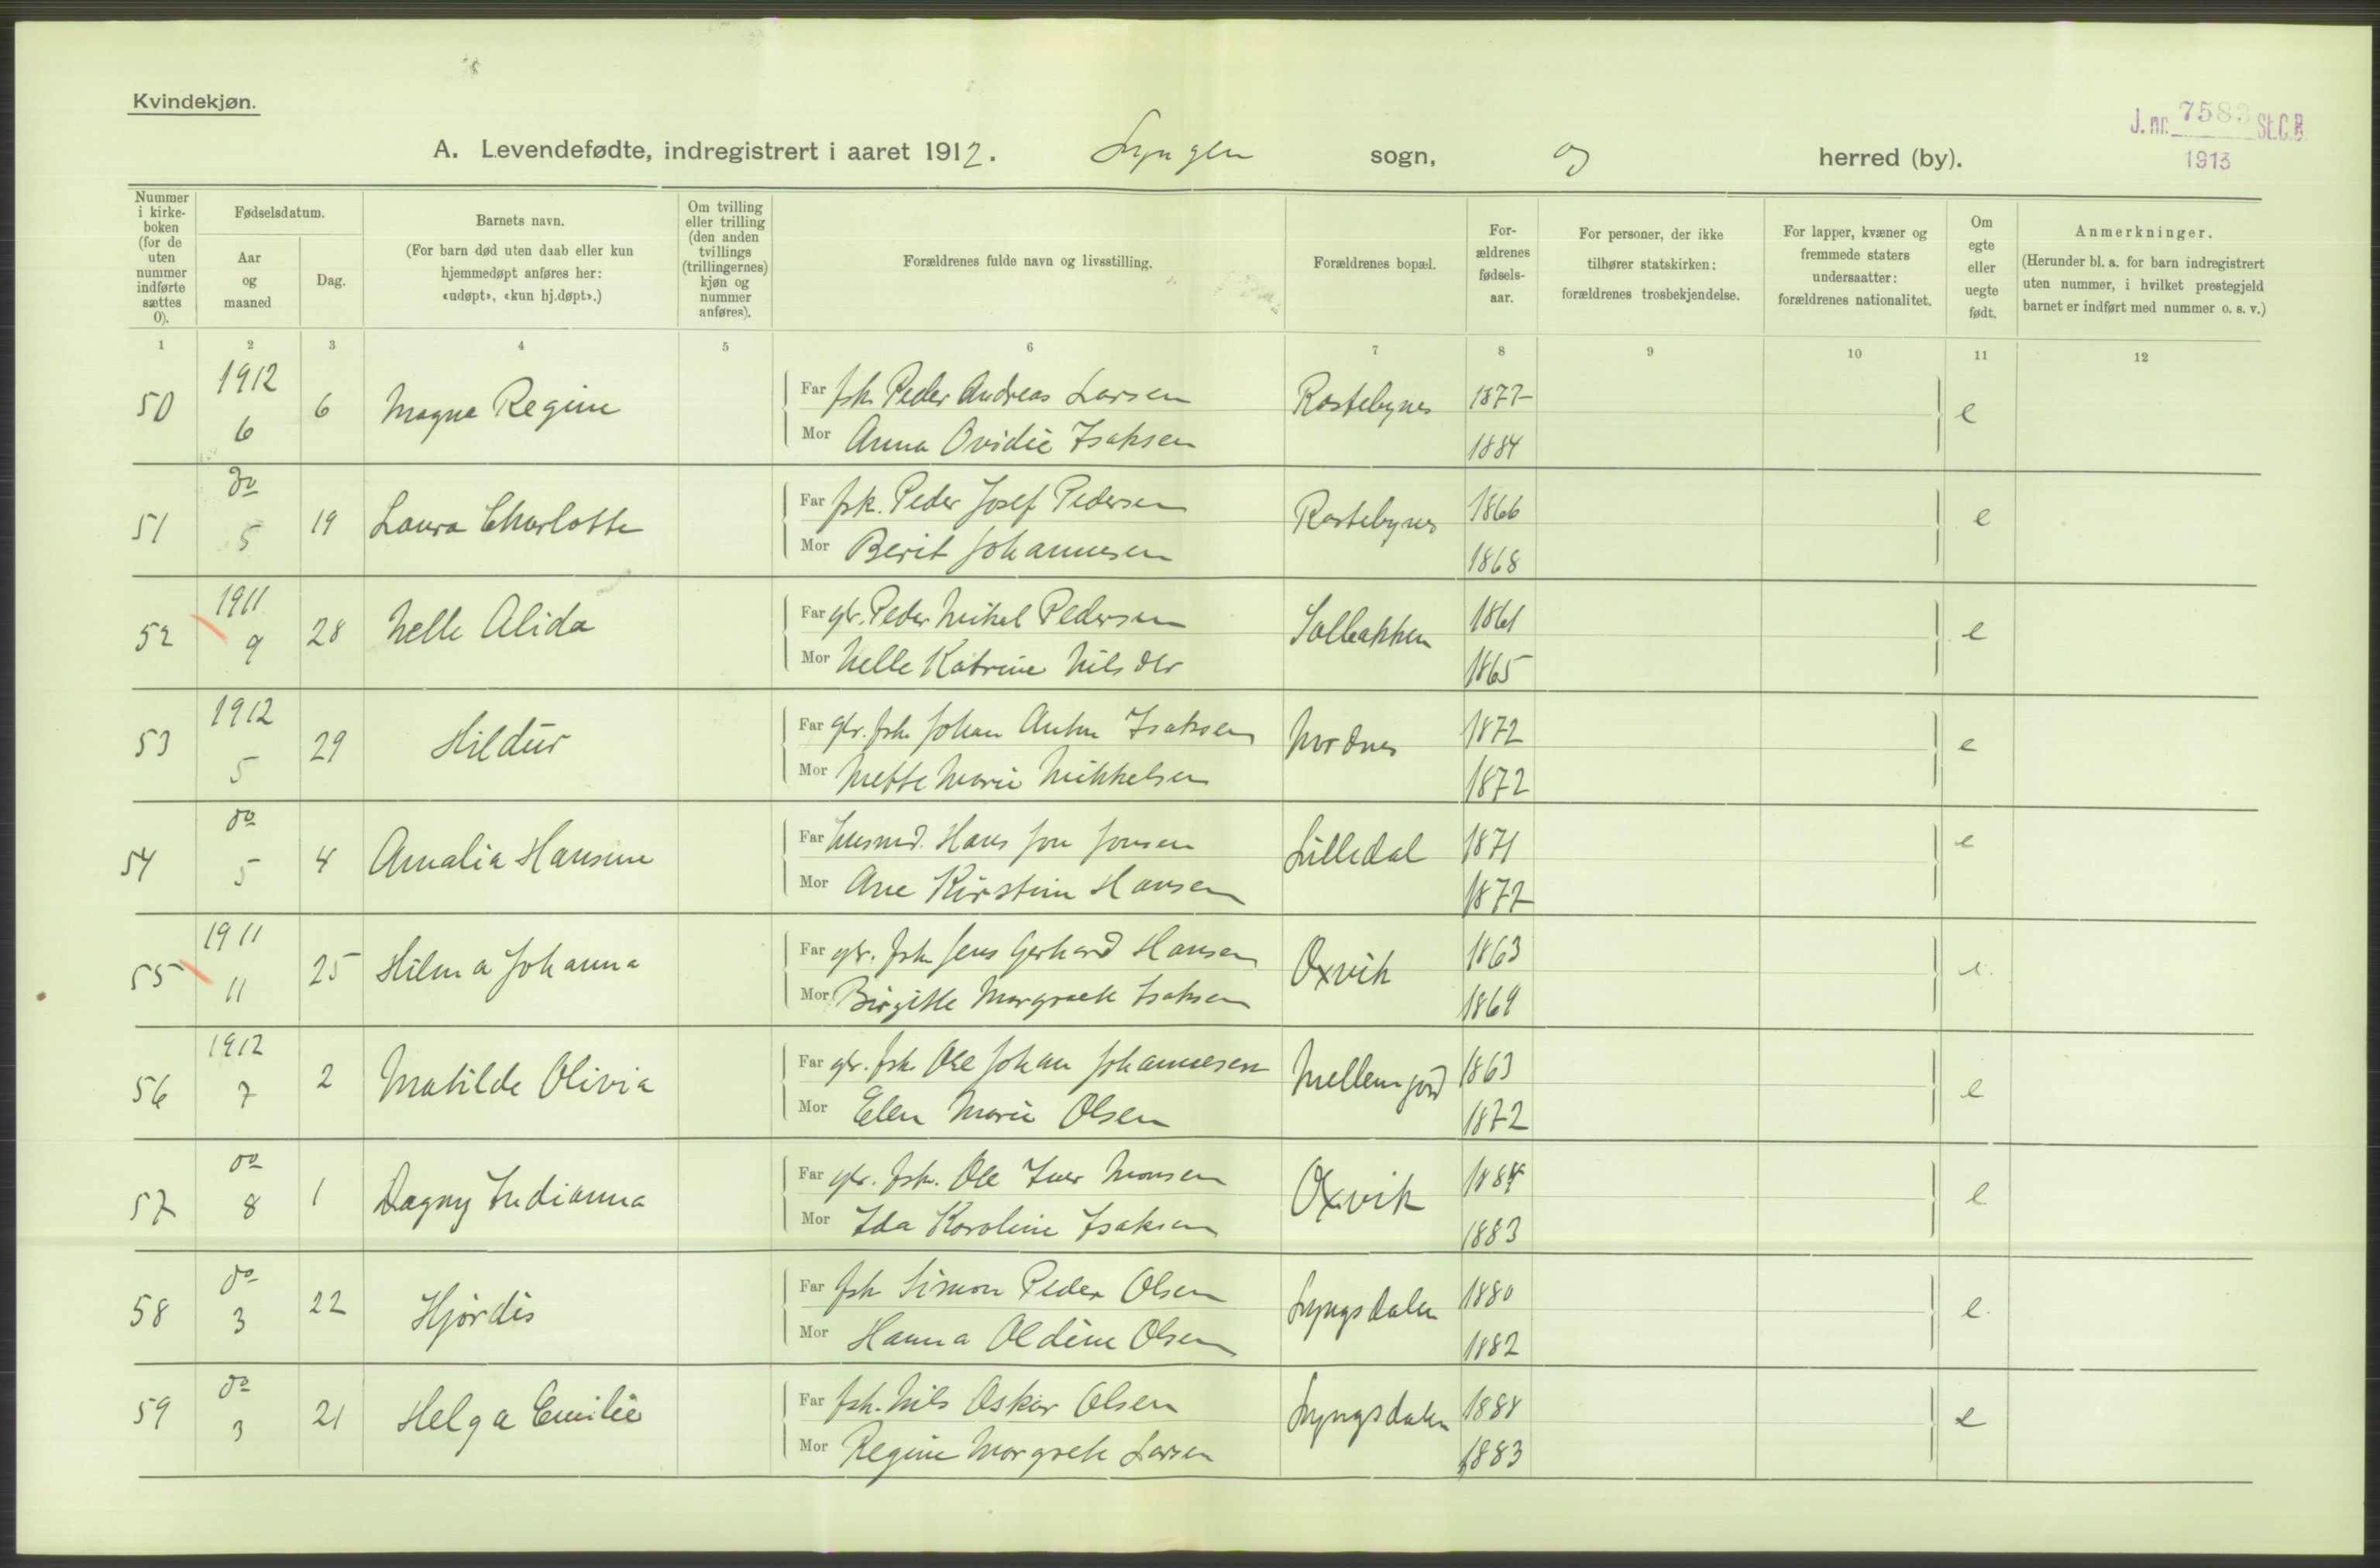 Kvindekjøn.
J. nr. 7583 St.C.B.
1913
A. Levendefødte, indregistrert i aaret 1912. Lyngen sogn, og herred (by).
Nummer i kirke-boken (for de uten nummer indførte sættes 0).
Fødselsdatum.
Aar og maaned
Dag.
Barnets navn.
(For barn død uten daab eller kun hjemmedøpt anføres her: «udøpt», «kun hj.døpt».)
Om tvilling eller trilling (den anden tvillings (trillingernes) kjøn og nummer anføres).
Forældrenes fulde navn og livsstilling.
Forældrenes bopæl.
For-ældrenes fødsels-aar.
For personer, der ikke tilhører statskirken: forældrenes trosbekjendelse.
For lapper, kvæner og fremmede staters undersaatter: forældrenes nationalitet.
Om egte eller uegte født.
Anmerkninger.
(Herunder bl. a. for barn indregistrert uten nummer, i hvilket prestegjeld barnet er indført med nummer o. s. v.)
1 2 3 4 5 6 7 8 9 10 11 12
50 1912 6 6 Magna Regine Far fsk. Peder Andreas Larsen Rastebynes 1877 e
Mor Anna Ovidie Isaksen 1884
51 do 5 19 Laura Charlotte Far fsk. Peder Josef Pedersen Rastebynes 1866 e
Mor Berit Johannesen 1868
52 1911 9 28 Nelle Alida Far gbr. Peder Mikal Pedersen Solbakken 1861 e
Mor Nelle Katrine Nils dtr 1865
53 1912 5 29 Hildur Far gbr. fsk Johan Anton Isaksen Nordnes 1872 e
Mor Mette Marie Mikkelsen 1872
54 do 5 4 Amalia Hansine Far husmd. Hans Jon Jonsen Lilledal 1871 e
Mor Ane Kirstine Hansen 1877
55 1911 11 25 Hilma Johanna Far gbr. fsk Jens Gerhard Hansen Oxvik 1863 e.
Mor Birgitte Margrete Isaksen 1869
56 1912 7 2 Matilde Olivia Far gbr. fsk Ole Johan Johannesen Mellemjord 1863 e
Mor Elen Marie Olsen 1872
57 do 8 1 Dagny Indianna Far gbr. fsk. Ole Iver Monsen Oxvik 1884 e
Mor Ida Karoline Isaksen 1883
58 do 3 22 Hjørdis Far fsk Simon Peder Olsen Lyngsdalen 1880 e.
Mor Hanna Oldine Olsen 1882
59 do 3 21 Helga Emilie Far fsk. Nils Oskar Olsen Lyngsdalen 1884 e
Mor Regine Margrete Larsen 1883